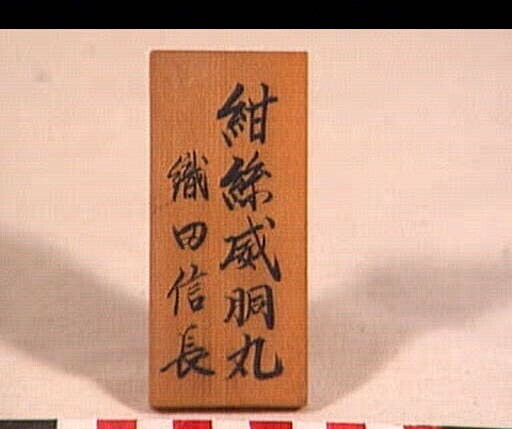 紺絲威胴丸
織田信長